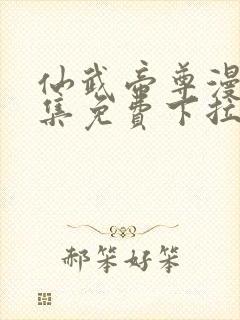 仙武帝尊漫
集免费下拉
郝笨好笨